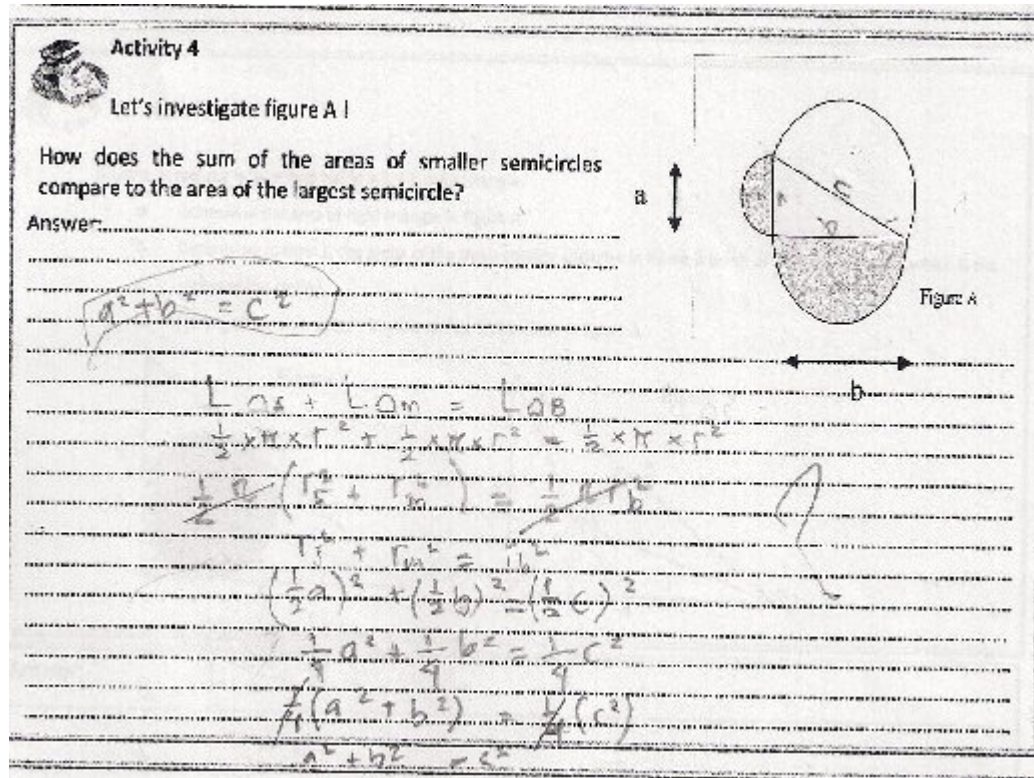 Activity 4
Let's investigate figure A !
How does the sum of the areas of smaller semicircles
compare to the area of the largest semicircle?
Answer:
a
c
b
Figure A
b
a² + b² = c²
L Qs + L Qm = L QB
½ × π × r² + ½ × π × r² = ½ × π × r²
½ π (rs² + rm²) = ½ π rb²
rs² + rm² = rb²
(½ a)² + (½ b)² = (½ c)²
¼ a² + ¼ b² = ¼ c²
¼ (a² + b²) = ¼ (c²)
a² + b² = c²